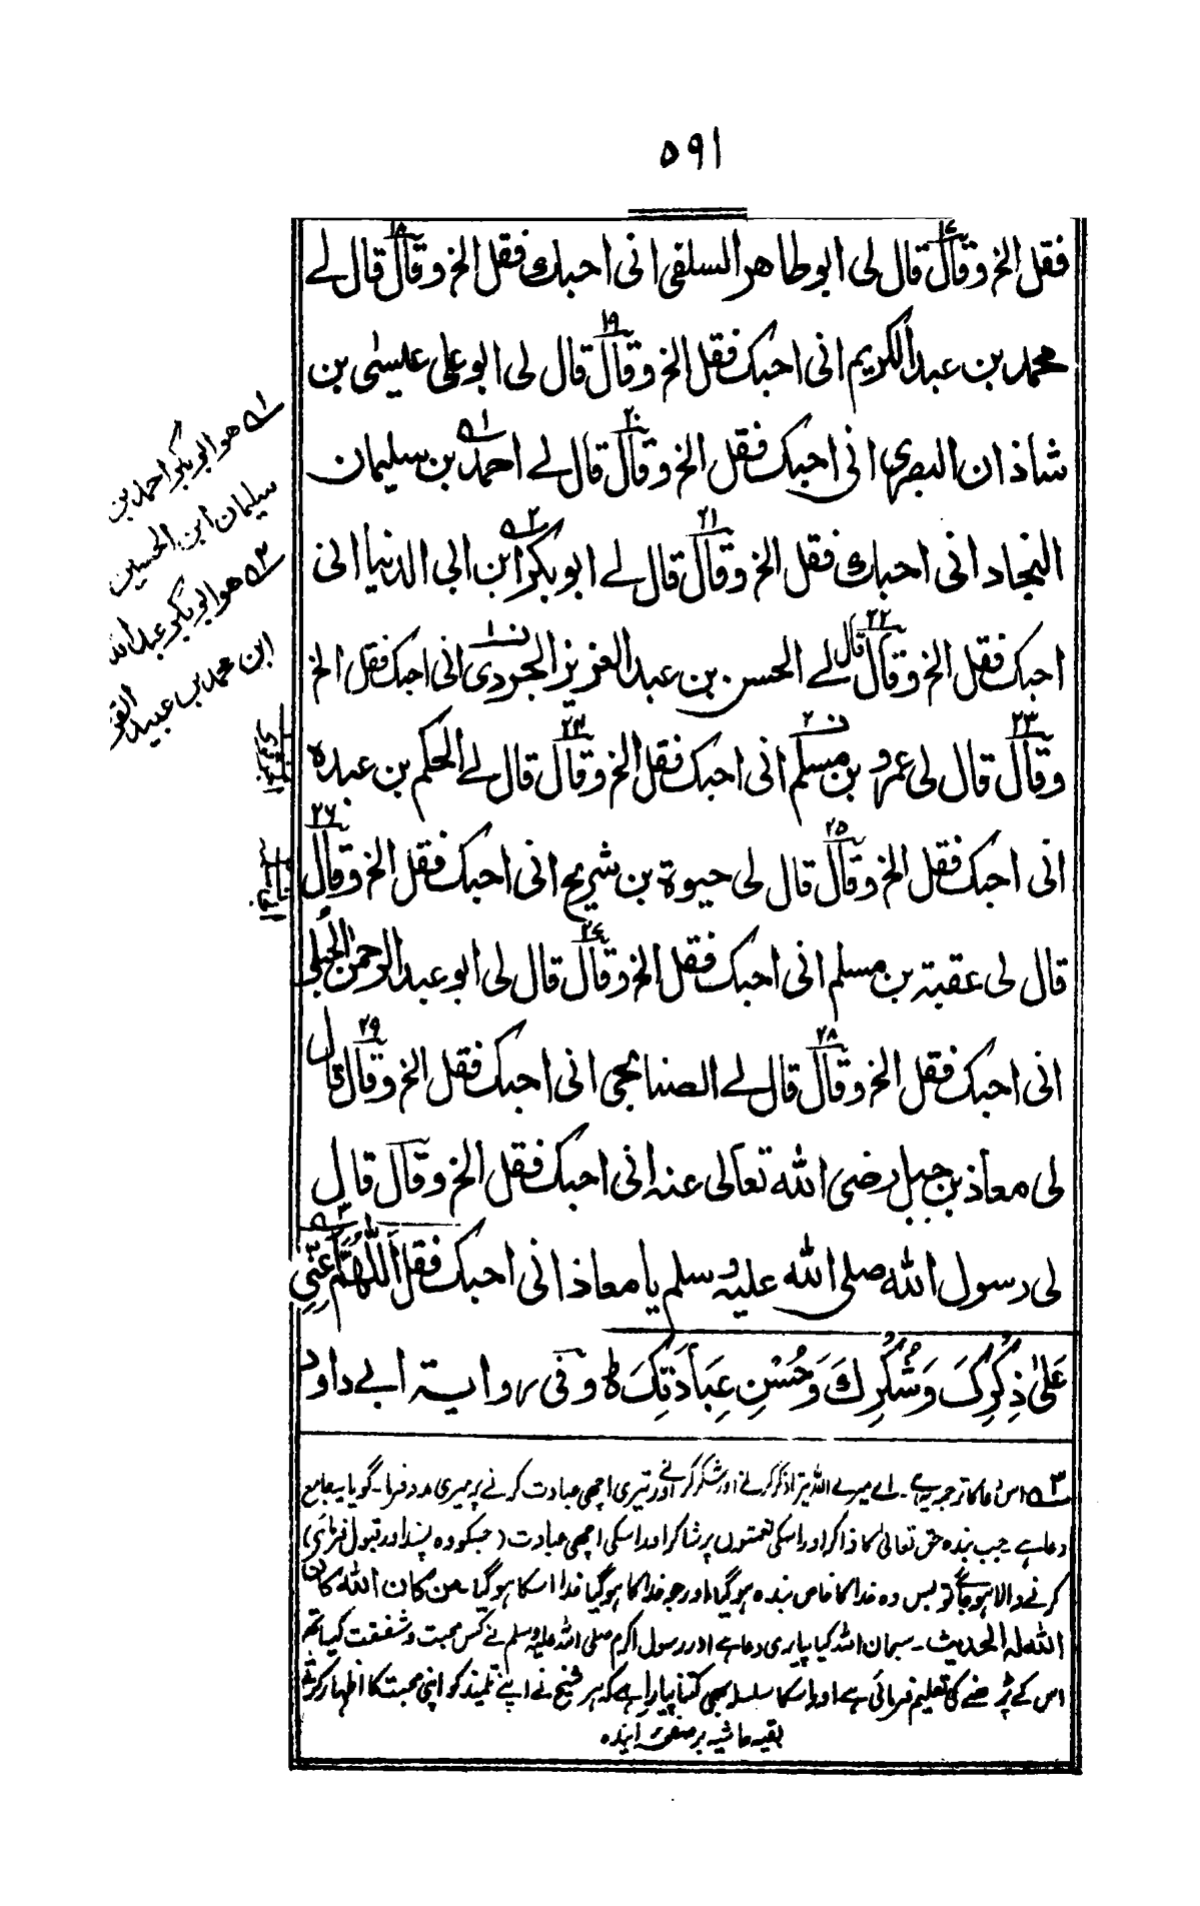 ٥٩١
فقل الخ وقال١٧ قال لی ابو طاهر السلفی انی احبك فقل الخ وقال١٨ قال لے
محمد بن عبد الکریم انی احبك فقل الخ وقال١٩ قال لی ابو علی عیسٰی بن
شاذان البصری انی احبك فقل الخ وقال٢٠ قال لے احمد١ بن سلیمان
النجاد انی احبك فقل الخ وقال٢١ قال لے ابو بکر٢ ابن ابی الدنیا انی
احبك فقل الخ وقال٢٢ قال لے الحسن بن عبد العزیز الجردی انی احبك فقل الخ
وقال٢٣ قال لی عمرو بن مسلم انی احبك فقل الخ وقال٢٤ قال لے الحکم بن عبده
انی احبك فقل الخ وقال٢٥ قال لی حیوة بن شریح انی احبك فقل الخ وقال٢٦
قال لی عقبة بن مسلم انی احبك فقل الخ وقال٢٧ قال لی ابو عبد الرحمن الحُبُلی
انی احبك فقل الخ وقال٢٨ قال لے الصنابحی انی احبك فقل الخ وقال٢٩ قال
لی معاذ بن جبل رضی الله تعالی عنه انی احبك فقل الخ وقال قال
لی رسول الله صلی الله علیه وسلم یا معاذ انی احبك فقل اَللّٰهُمَّ٣ اَعِنِّیْ
عَلٰی ذِکْرِكَ وَشُکْرِكَ وَحُسْنِ عِبَادَتِكَ ط وفی روایة ابی داود
١ هو ابو بکر احمد بن
سلیمان ابن الحسین
٢ هو ابو بکر عبد الله
ابن محمد بن عبید
٣ اس دعا کا ترجمہ یہ ہے۔ اے میرے اللہ تیرا ذکر کرنے اور شکر کرنے اور تیری اچھی عبادت کرنے پر میری مدد فرما۔ گویا یہ جامع
دعا ہے۔ جب بندہ حق تعالیٰ کا ذاکر اور اسکی نعمتوں پر شاکر اور اسکی اچھی عبادت (جسکو وہ پسند اور قبول فرمائے)
کرنے والا ہو جائے تو بس وہ خدا کا خاص بندہ ہو گیا، اور جو خدا کا ہو گیا خدا اسکا ہو گیا۔ من کان اللہ کان
اللہ لہ الحدیث۔ سبحان اللہ کیا پیاری دعا ہے اور رسول اکرم صلی اللہ علیہ وسلم نے کس محبت و شفقت کیساتھ
اس کے پڑھنے کی تعلیم فرمائی ہے اور اسکا سلسلہ بھی کتنا پیارا ہے کہ ہر شیخ نے اپنے تلمیذ کو اپنی محبت کا اظہار کرکے
بقیہ حاشیہ بر صفحہ آیندہ